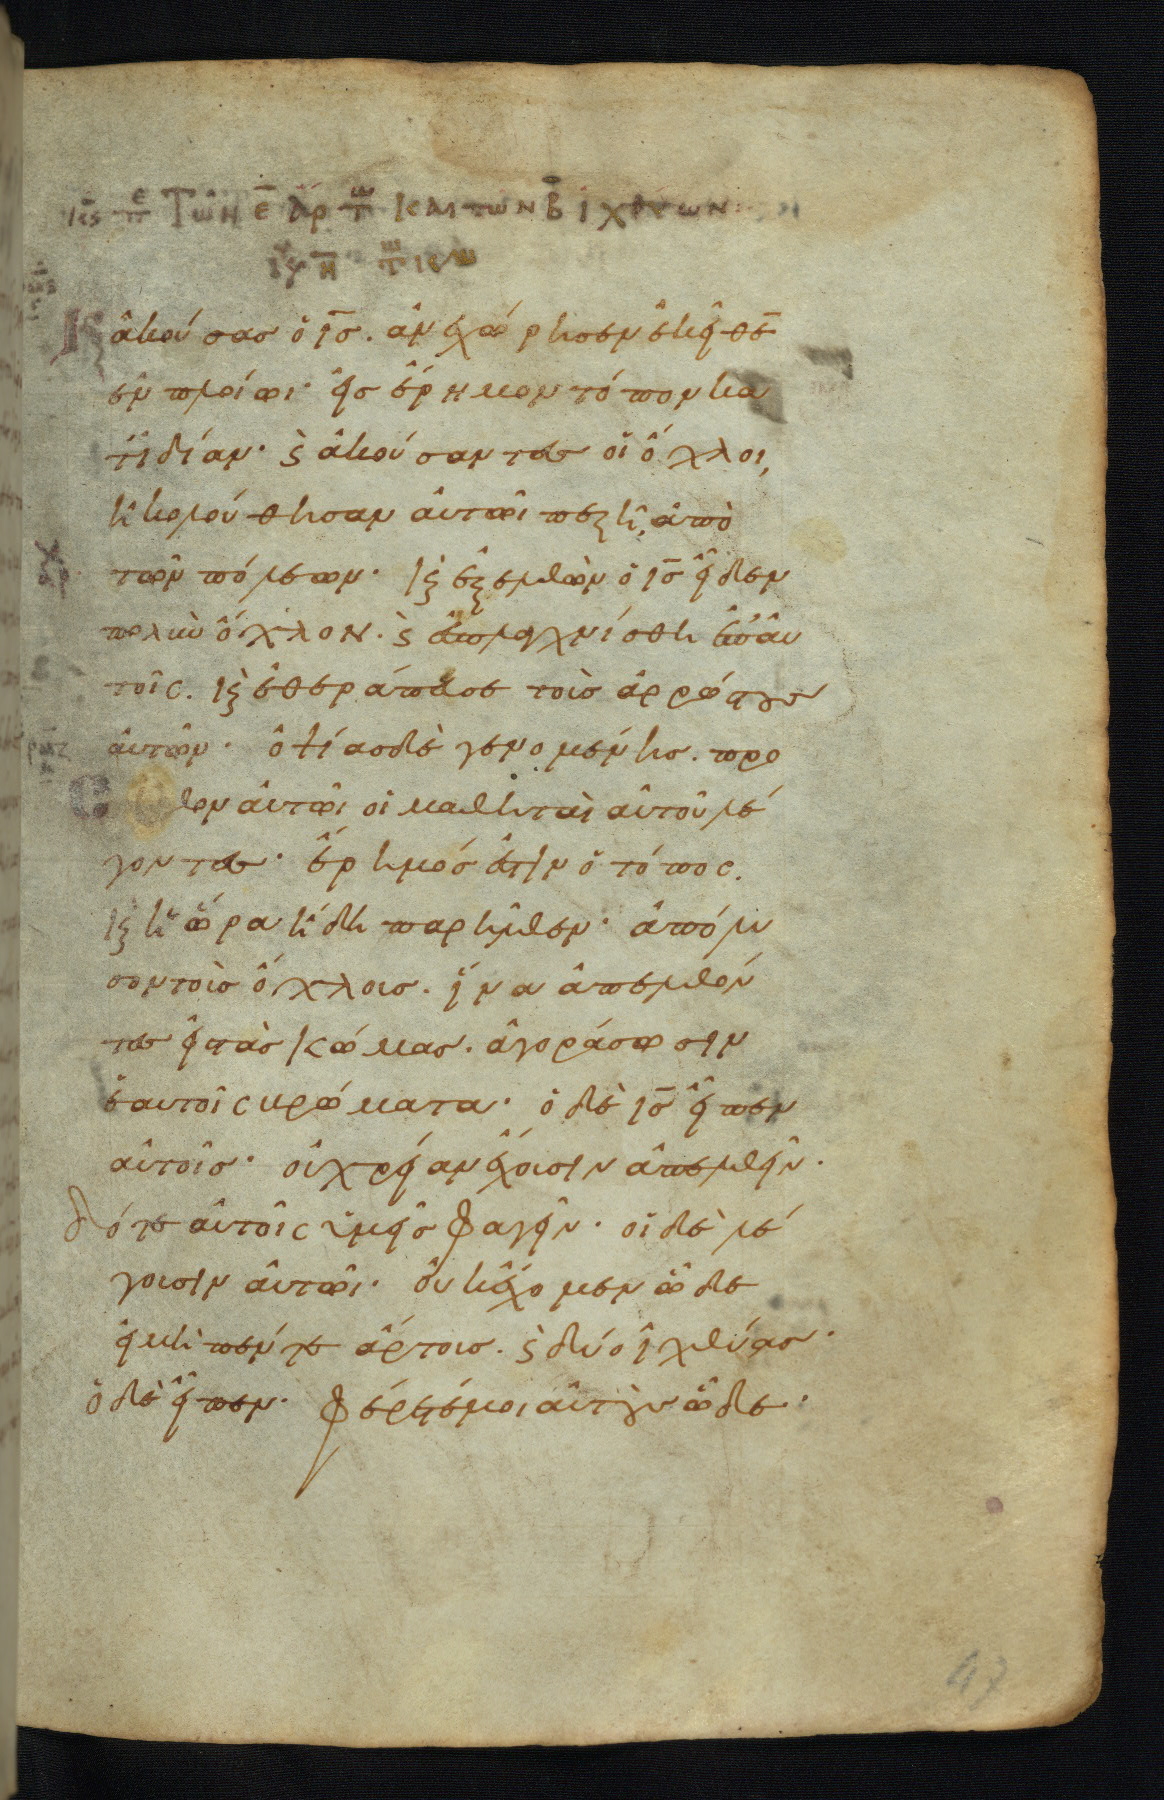 κϛ πε Τῶν ε̄ ἄρτω καὶ τῶν β̄ ἰχθύων
Κ ἀκούσας ὁ ι̅ς̅. ἀνεχώρησεν ἐκεῖθε̅
ἐν πλοίωι· εἰς ἔρημον τόπον κα
τϊδίαν· ϛ ἀκούσαντες οἱ ὄχλοι,
ἠκολούθησαν αὐτῶι πεζῆ, ἀπὸ
τῶν πόλεων· κ ἐξελθὼν ὁ ι̅ς̅ εἶδεν
πολὺν ὄχλον. ϛ ἐσπλαγχνίσθη ἐπ' αὐ
τοῖς. κ ἐθεράπευσε τοὺς ἀρρώστους
αὐτῶν· ὀψίας δὲ γενομένης. προ
σῆλθον αὐτῶι οἱ μαθηταὶ αὐτοῦ λέ
γοντες· ἔρημός ἐστιν ὁ τόπος.
κ ἡ ὥρα ἤδη παρῆλθεν· ἀπόλυ
σον τοὺς ὄχλους. ἵνα ἀπελθόν
τες εἰς τὰς κώμας. ἀγοράσωσιν
ἑαυτοῖς βρώματα· ὁ δὲ ι̅ς̅ εἶπεν
αὐτοῖς· οὐ χρείαν ἔχουσιν ἀπελθεῖν.
δότε αὐτοῖς ὑμεῖς φαγεῖν· οἱ δὲ λέ
γουσιν αὐτῶι· οὐκ ἔχομεν ὧδε
εἰ μὴ πέντε ἄρτους. ϛ δύο ἰχθύας·
ὁ δὲ εἶπεν· φέρετέ μοι αὐτοὺς ὧδε·
47